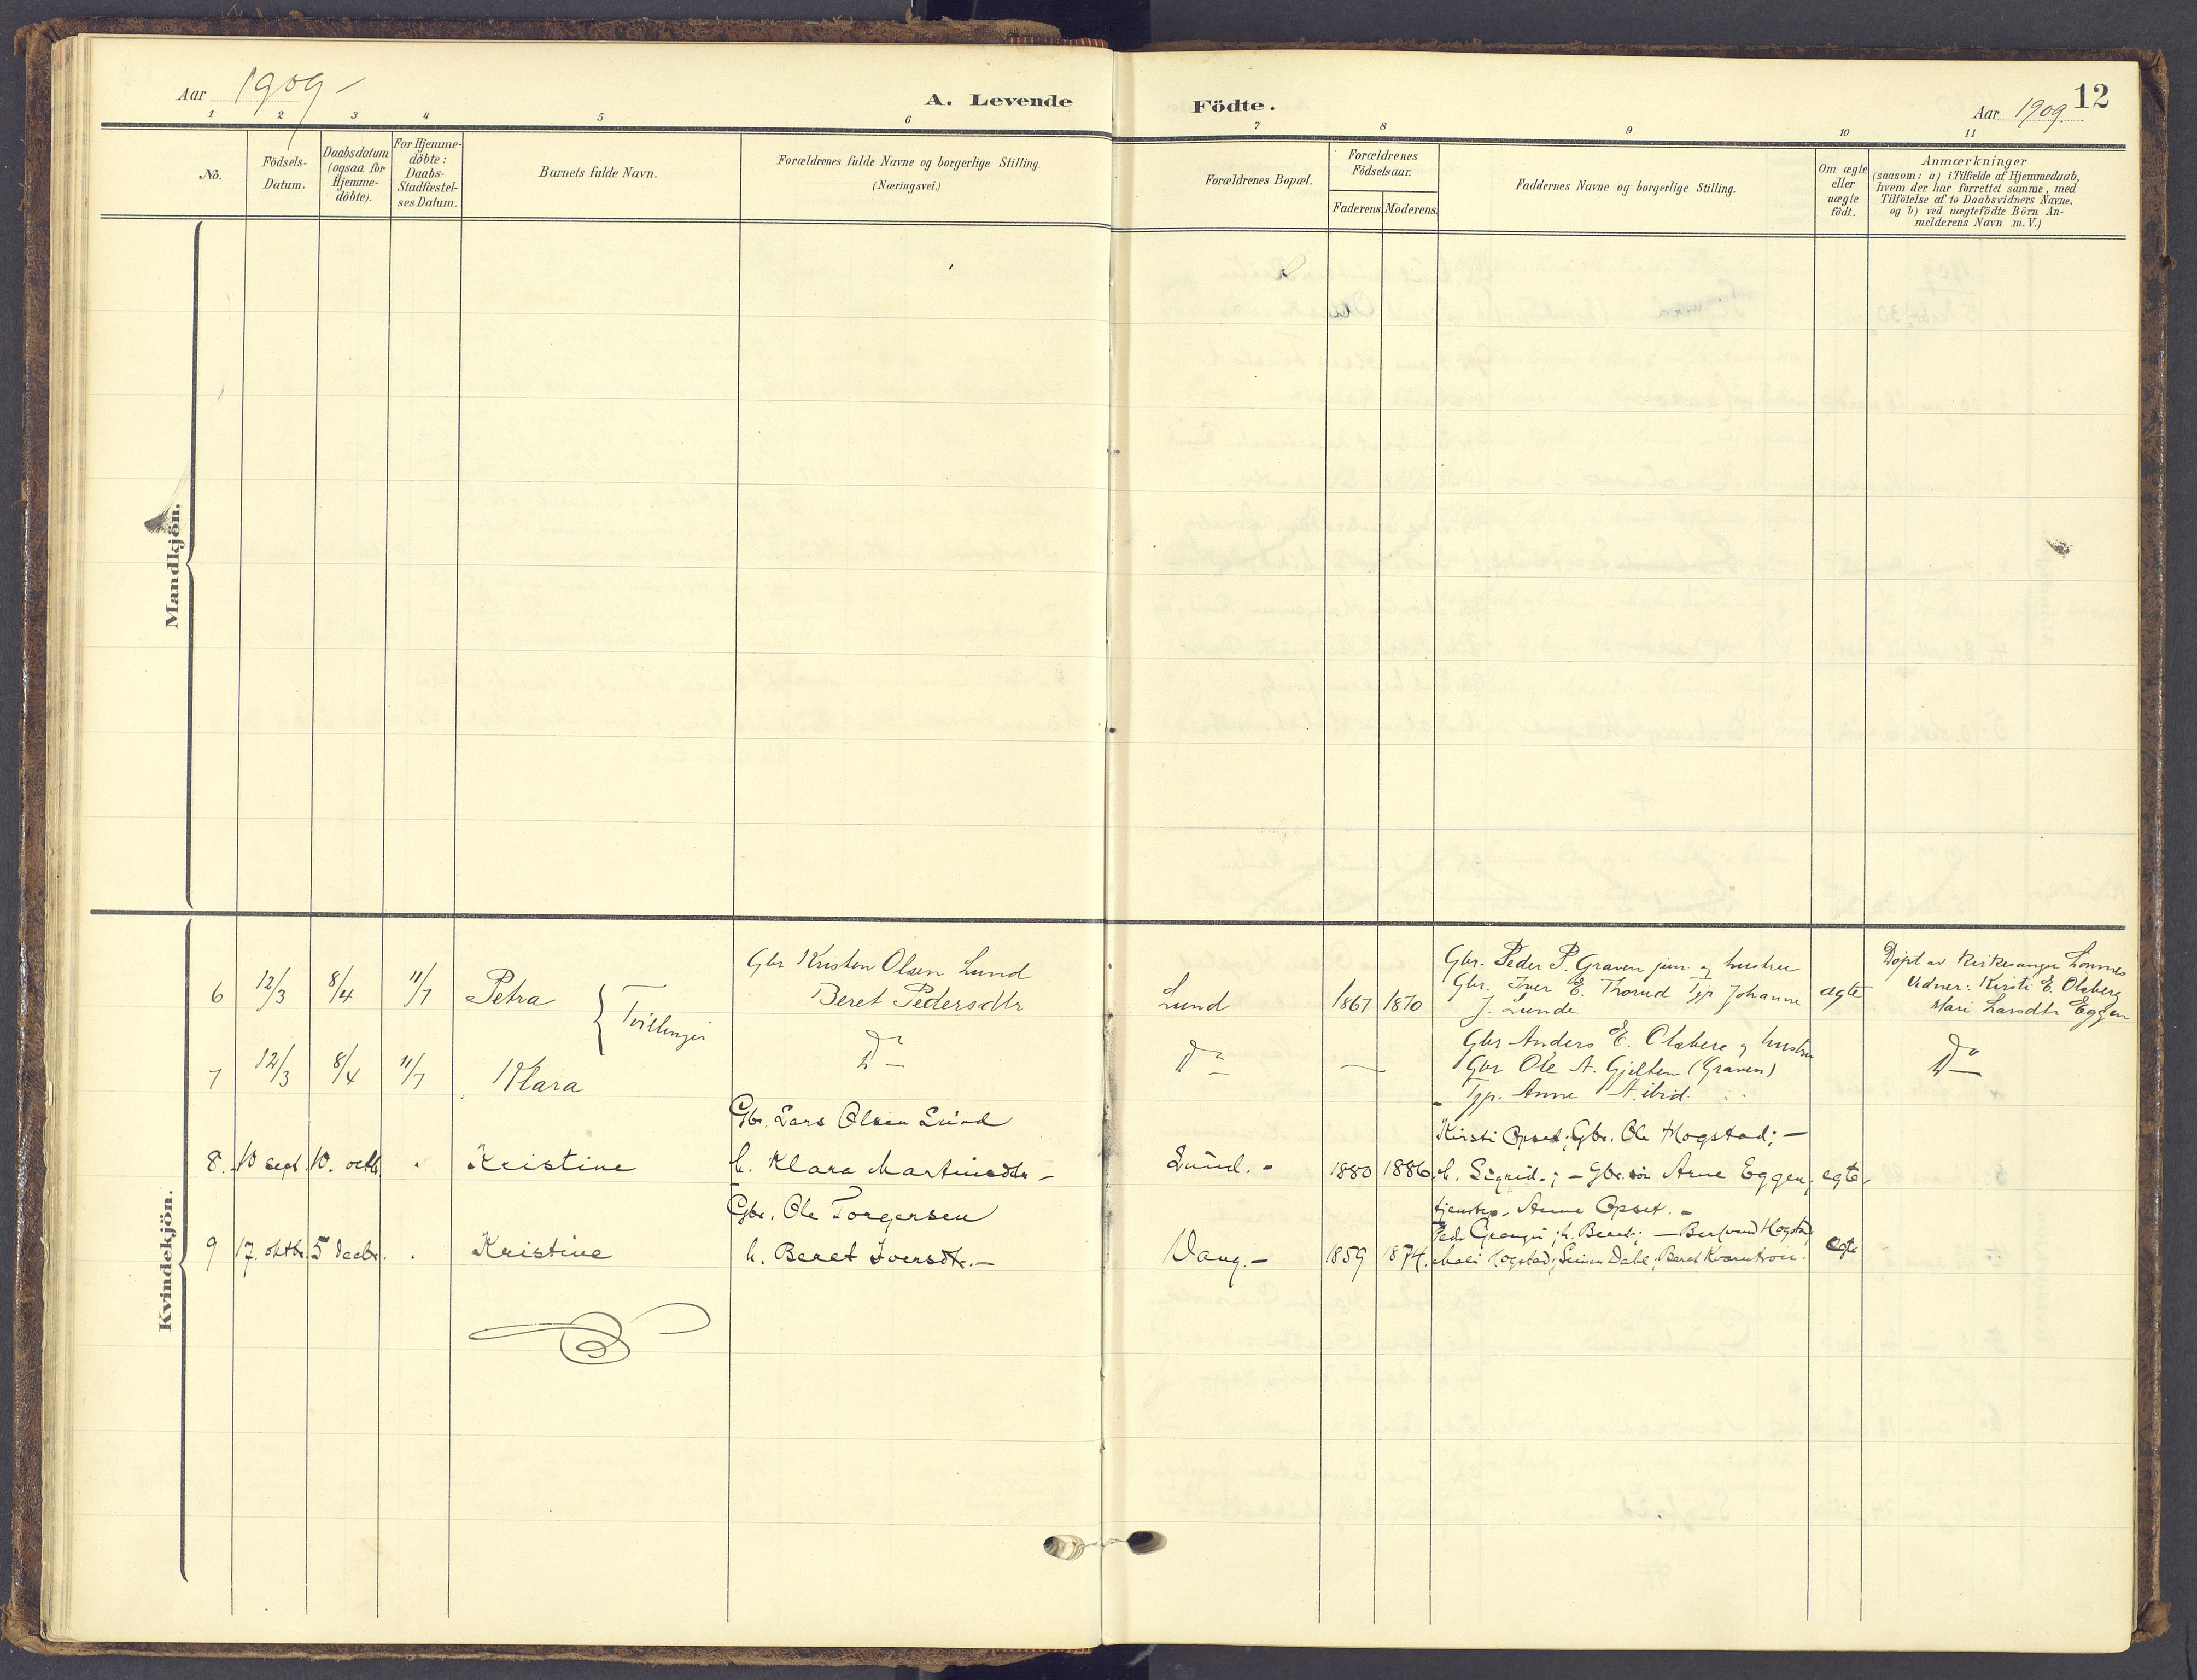 Aar 1909 –
A. Levende
Födte.
Aar 1909.
12
1 2 3 4 5 6 7 8 9 10 11
No.
Födsels-
Datum.
Daabsdatum
(ogsaa for
Hjemme-
döbte).
For Hjemme-
döbte:
Daabs-
Stadfæstel-
ses Datum.
Barnets fulde Navn.
Forældrenes fulde Navne og borgerlige Stilling.
(Næringsvei.)
Forældrenes Bopæl.
Forældrenes
Födselsaar.
Faderens. Moderens.
Faddernes Navne og borgerlige Stilling.
Om ægte
eller
uægte
födt.
Anmærkninger
(saasom: a) i Tilfælde af Hjemmedaab,
hvem der har forrettet samme, med
Tilföielse af to Daabsvidners Navne.
og b) ved uægtefödte Börn An-
melderens Navn m. V.)
Mandkjön.
Kvindekjön.
6 12/3 8/4 11/7 Petra
Tvillinger
Gbr Kristen Olsen Lund
Beret Pedersdtr
Lund 1867 1870
Gbr. Peder P. Graven jun. og hustru
Gbr. Iver E. Thorud Tjp. Johanne
J. Lunde
ægte
Døpt av Kirkesanger
Vidner: Kirsti E. Olsberg
Mari Larsdtr Eggen
7 12/3 8/4 11/7 Klara
Do – Do –
Gbr Anders E. og hustru
Gbr Ole A. Gjelten (Graven)
Tjp. Anne A. ibid.
Do –
8. 10 sept. 10. octb. Kristine
Gbr. Lars Olsen Lund
h. Klara Martinsdtr –
Lund. – 1880 1886
Kirsti Opset; Gbr. Ole Hogstad; –
h. Sigrid.; – Gbr. søn Arne Eggen,
tjenstep. Anne Opset. –
egte.
9 17. oktbr. 5 decbr. Kristine
Gbr. Ole Torgersen
h. Beret Iversdtr. –
Vang. – 1859 1874.
h. Beret; – Hogstad,
Mali Hogstad; Dahl, Beret
egte